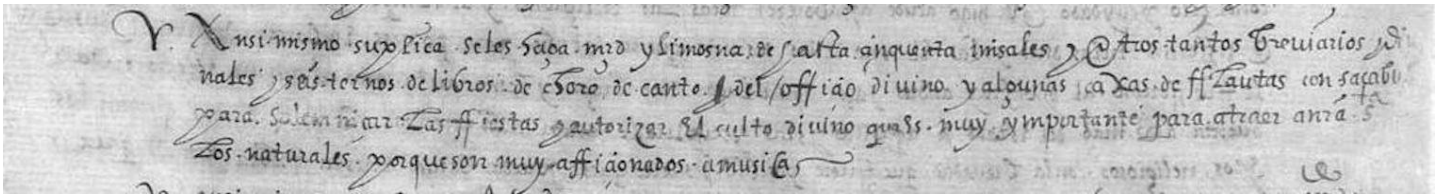 V. Ansi mismo suplica se les haga mrd y limosna de hasta cinquenta misales y otros tantos breviarios y di
nales y seis ternos de libros de choro de canto del officio divino y algunas caxas de fflautas con sacabu
para solemnicar las ffiestas y autorizar el culto divino ques muy ymportante para atraer a nra sta
los naturales porque son muy afficionados a musica